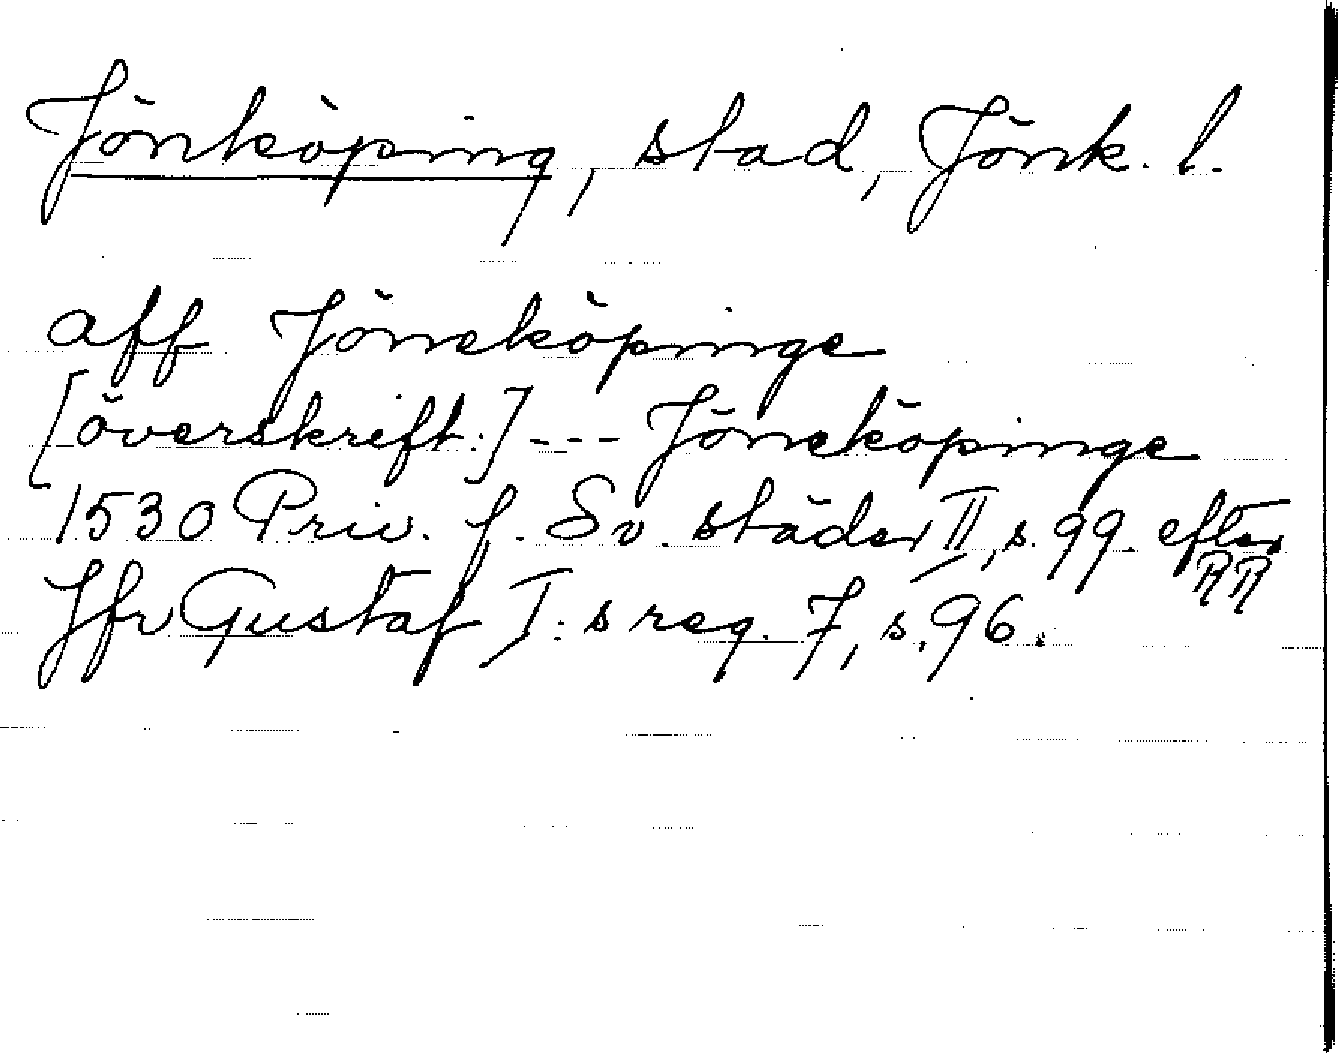 Jönköping, stad, Jönk. l.
aff Jöneköpinge
[överskrift.] --- Jöneköpinge
1530 Priv. f. Sv. städer II, s. 99. efter RR
Jfr Gustaf I:s reg. 7, s. 96.